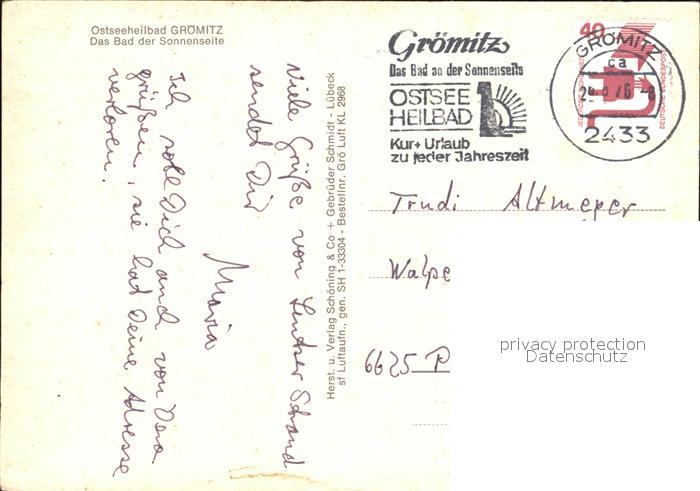 Ostseeheilbad GRÖMITZ
Das Bad der Sonnenseite
Viele Grüße von Strand
sendet Dir
Maria
Ich soll Dich auch von
grüßen, sie hat Deine Adresse
verloren.
Herst. u. Verlag Schöning & Co + Gebrüder Schmidt - Lübeck
sf Luftaufn., gen. SH 1-33304 - Bestellnr. Grö Luft KL 2968
Grömitz
Das Bad an der Sonnenseite
OSTSEE
HEILBAD
Kur + Urlaub
zu jeder Jahreszeit
40
DEUTSCHE BUNDESPOST
GRÖMITZ
ca
2433
Trudi Altmeyer
Walpe
6625 P
privacy protection
Datenschutz